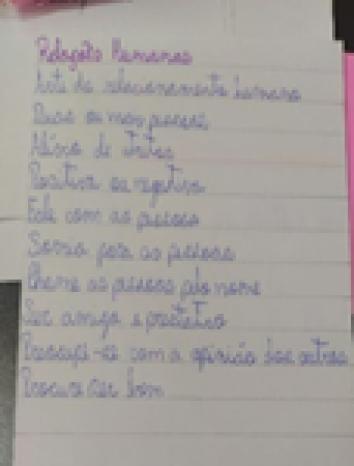 Relações Humanas
Arte do relacionamento humano
Duas ou mais pessoas
de
Positiva ou negativa
Fale com as pessoas
Sorria para as pessoas
Chame as pessoas pelo nome
Ser amigo e prestativo
Preocupe-se com a opinião dos outros
Procure ser bom